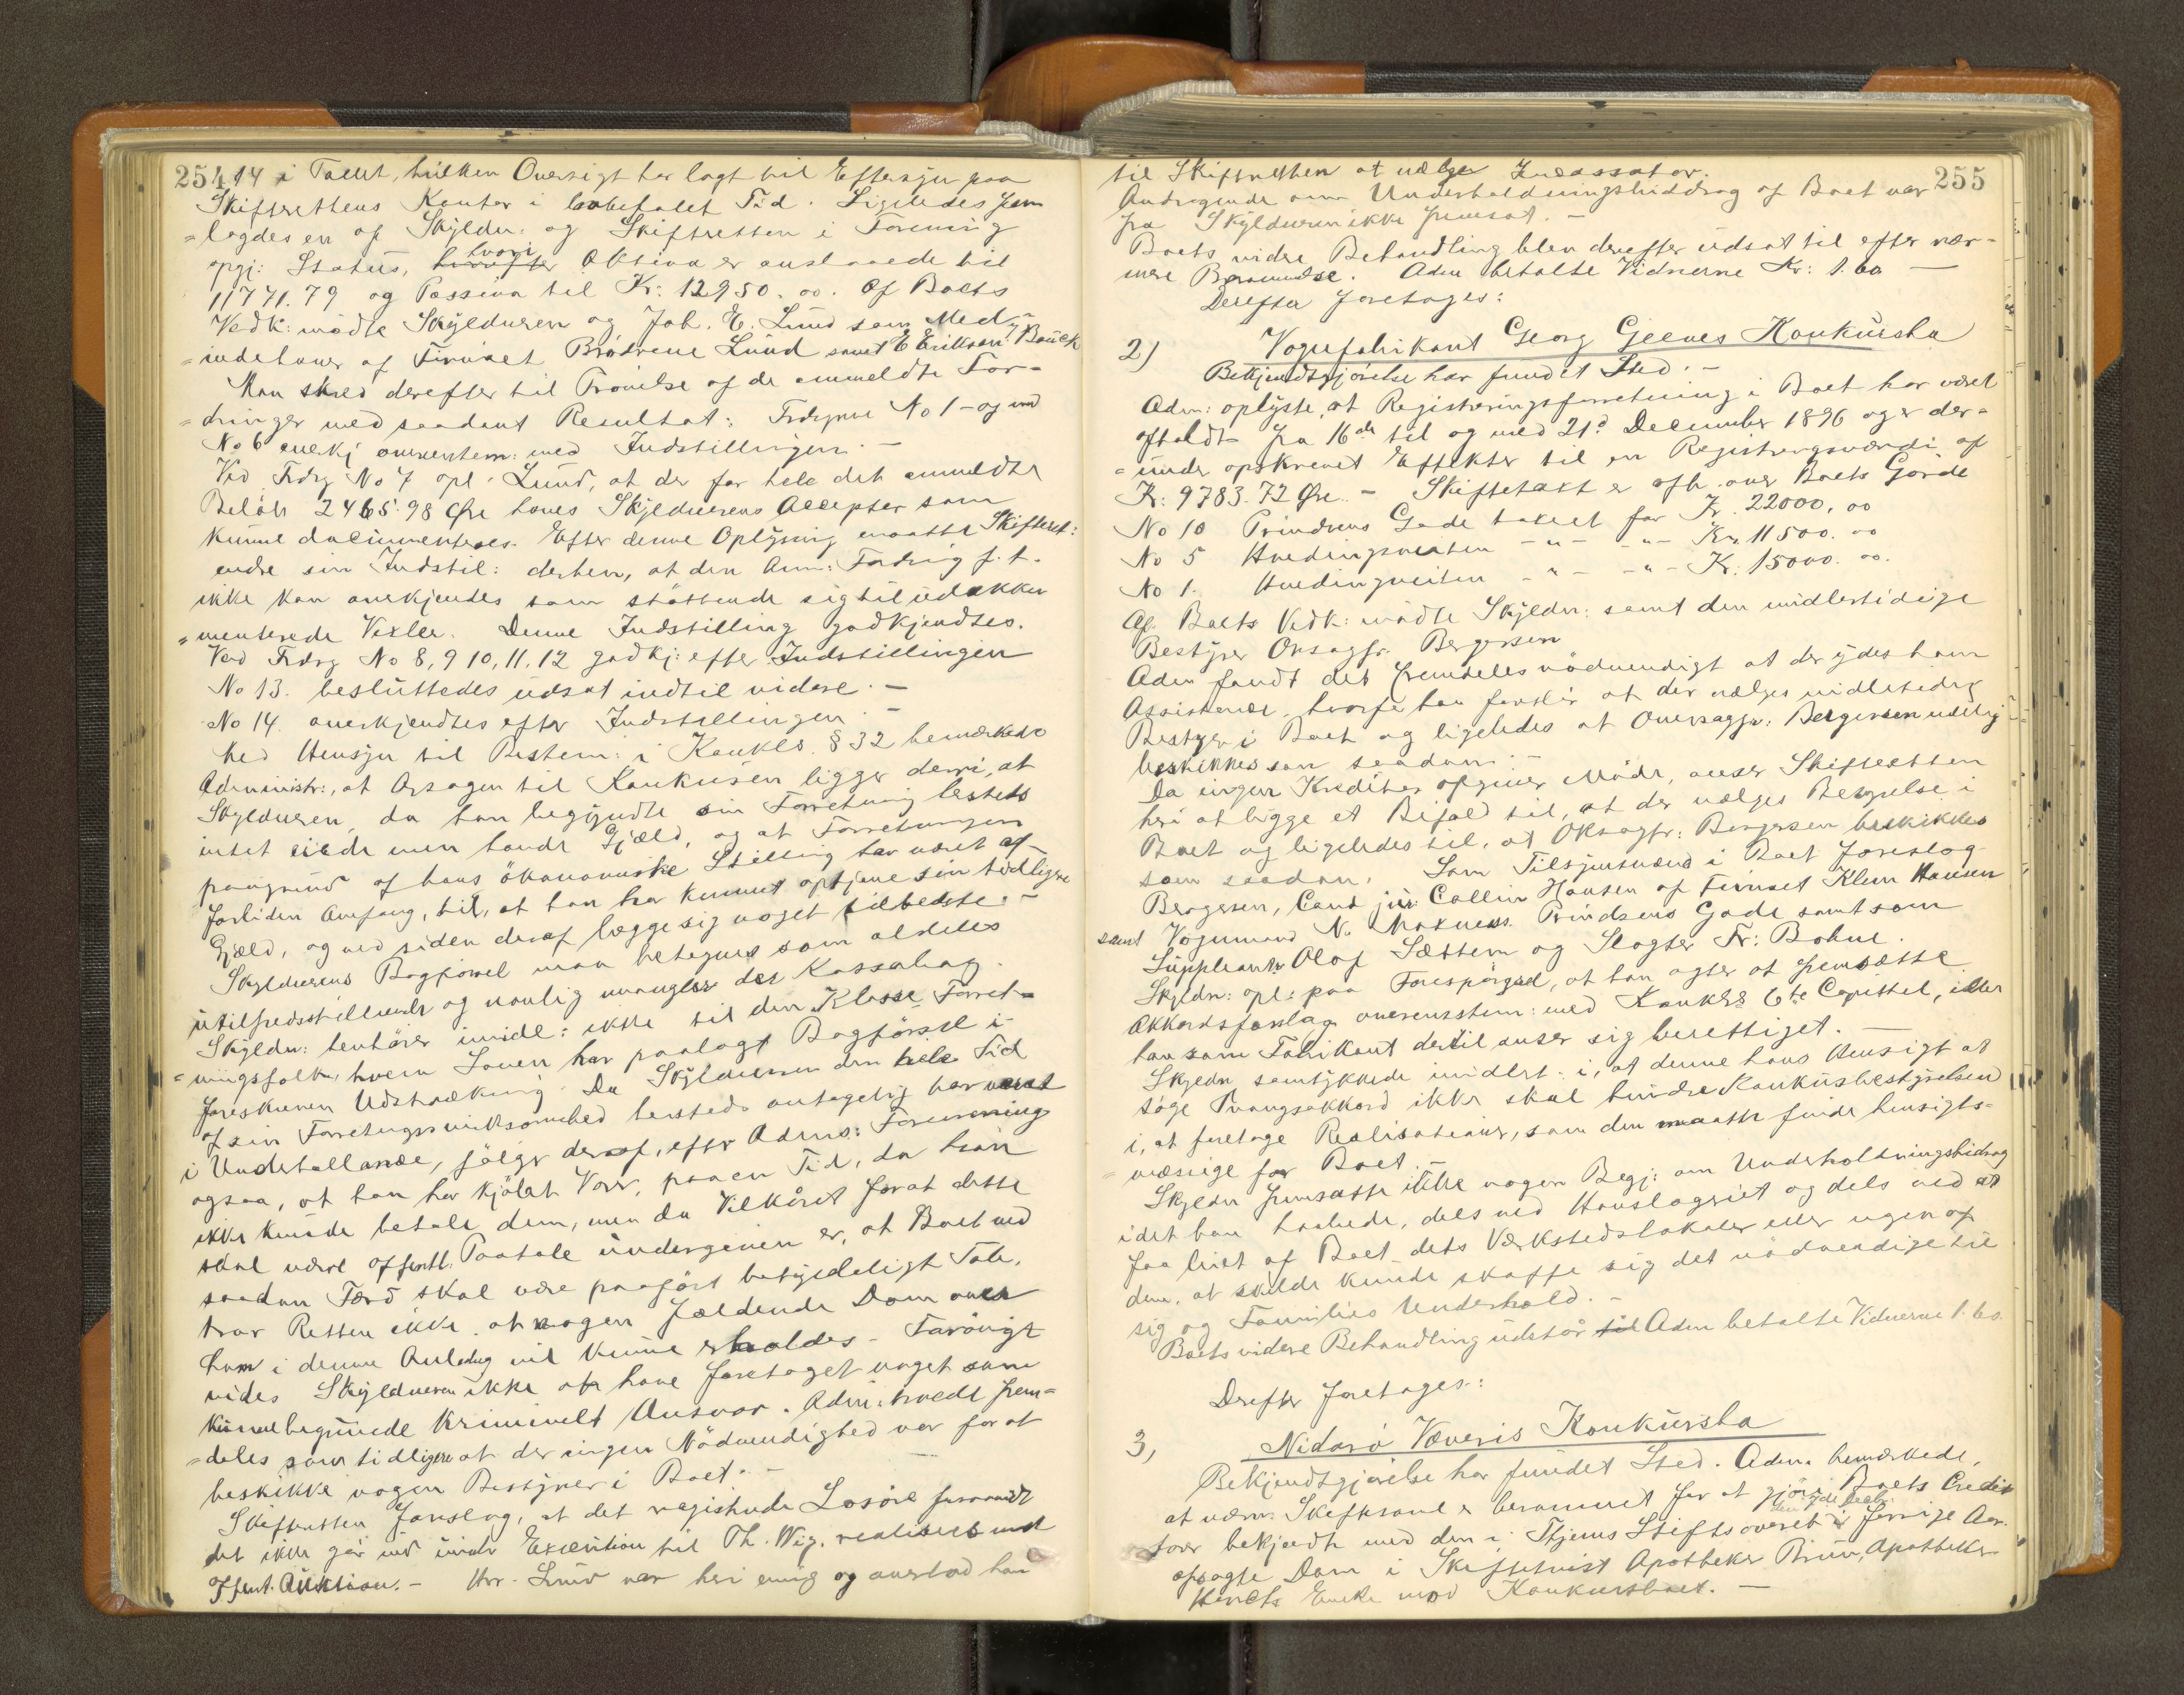 254
14 i Tallet, hvilken Oversigt har lagt til Eftersyn paa
Skifterettens Kontor i lovbefalet Tid. Ligeledes frem
=lagdes en af Skyldn: og Skifteretten i Forening
opgj: Status, hvori Aktiva er anslaaede til
11771.79 og Passiva til Kr: 12950.00. Af Boets
Vedk: mødte Skyldneren og Joh. E. Lund som Med-
=indehaver af Firmaet Brødrene Lund samt E Erikson Bauck
Man skred derefter til Prøvelse af de anmeldte For-
=dringer med saadant Resultat: Frdgrne No 1 - og med
No 6 anerkj overenstem: med Indstillingen. -
Ved Frdrg No 7 opl. Lund, at der for hele det anmeldte
Beløb 2465.98 Øre haves Skyldnerens Accepter som
kunne documenteres. Efter denne Oplysning maatte Skifteret:
endre sin Indstil: derhen, at den Anm: Fordring f. t.
ikke kan anerkjendes som støttende sig til udokku
=menterede Vexler. Denne Indstilling godkjendtes.
Ved Frdrg No 8, 9 10, 11, 12 godkj: efter Indstillingen
No 13. besluttedes udsat indtil videre. -
No 14. anerkjendtes efter Indstillingen. -
Med Hensyn til Bestem: i Konkl§ § 32 bemærkede
Administr:, at Aarsagen til Konkursen ligger deri, at
Skyldneren, da han begyndte sin Forretning hersteds
intet eiede men havde Gjæld, og at Forretningen
paagrund af hans økonomiske Stilling har været af
forliden Omfang, til, at han har kunnet optjene sin tidligere
Gjæld, og ved siden deraf lægge sig noget tilbedste. -
Skyldnerens Bogførsel maa betegnes som aldeles
utilfredsstillende og navnlig mangler der Kassabog.
Skyldn: henhører imidl: ikke til den Klasse Forret-
=ningsfolk, hvem Loven har paalagt Bogførsel i
foreskreven Udstrækning. Da Skyldneren den hele Tid
af sin Forretningsvirksomhed hersteds antagelig har været
i Underballance, følger deraf, efter Admrs: Formening
ogsaa, at han har kjøbt Varer, paa en Tid, da han
ikke kunde betale dem, men da Vilkåret for at dette
skal være offentl: Paatale undergiven er, at Boet ved
saadan Færd skal være paaført betydeligt Tab,
tror Retten ikke at nogen fældende Dom over
ham i denne Anledng vil kunne erholdes - Forøvrigt
vides Skyldneren ikke at have foretaget noget som
kunne begrunde kriminelt Ansvar. Adm: troede frem=
=deles som tidligere at der ingen Nødvendighed var for at
beskikke nogen Bestyrer i Boet. -
Skifteretten foreslog, at det registrerede Løsøre forsaavidt
det ikke går ind under Execution til Th. Wig, realiseres ved
offent. Auktion. - Hr. Lund var heri enig og overlod han
255
til Skifteretten at vælge Incassator.
Andragende om Underholdningsbiddrag af Boet var
fra Skyldneren ikke fremsat. -
Boets videre Behandling blev derefter udsat til efter nær-
mere Berammelse. Adm betalte Vidnerne Kr: 1.60 -
Derefter foretages:
2) Vognfabrikant Georg Gjeenes Konkursbo
Bekjendtgjørelse har fundet Sted. -
Adm: oplyste, at Registreringsforretning i Boet har været
afholdt fra 16de til og med 21de December 1896 og er der-
=under opskrevet Effekter til en Registrergsværdi af
Kr: 9783.72 Øre - Skiftetaxt er afh. over Boets Gårde
No 10 Prindsens Gade taxeret for Kr. 22000,00
No 5 Hvedingsveiten -"- -"- Kr. 11500.00
No 1. Hvedingsveiten -"- -"- Kr. 15000.00.
Af Boets Vedk: mødte Skyldn: samt den midlertidige
Bestyrer Ovsagfr. Bergersen
Adm fandt det fremdeles nødvendigt at der ydes ham
Assistence, hvorfor han foreslår at der vælges midlertidig
Bestyrer i Boet og ligeledes at Oversagfr: Bergersen udelig
beskikkes som saadan. -
Da ingen Kreditor afgiver Møde, anser Skifteretten
heri at ligge et Bifald til, at der vælges Bestyrelse i
Boet og ligeledes til, at Oksagfr: Bergersen beskikkes
som saadan. Som Tilsynsmænd i Boet foreslog
Bergersen, Cand jur: Collin Hansen af Firmaet Klem Hansen
samt Vognmand N. Moxness Prindsens Gade samt som
Suppleant Olaf Sættem og Slagter Fr: Bohne.
Skyldn: opl: paa Forespørgsel, at han agter at fremsætte
Akkordsforslag overensstem: med Konkl§ 6te Capittel, idet
han som Fabrikant dertil anser sig berettiget. -
Skyldn samtykkede imidlert: i, at denne hans Hensigt at
søge Tvangsakkord ikke skal hindre Konkursbestyrelsen
i, at foretage Realisationer, som den maatte finde hensigts-
=mæssige for Boet. -
Skyldn fremsatte ikke nogen Begj: om Underholdningsbidrag
idet han haabede, dels ved Hanslageriet og dels ved at
faa leiet af Boet dets Værkstedslokaler eller nogen af
dem, at skulde kunde skaffe sig det nødvendige til
sig og Families Underhold. -
Boets videre Behandling udstår Adm betalte Vidnerne 1.60.
Drefter foretages:
3, Nidarø Væveris Konkursbo
Bekjendtgjørelse har fundet Sted. Adm: bemærkede,
at nærv: Skiftesaml er berammet for at gjøre Boets Credit
torer bekjendt med den i Thjems Stiftsoveret i forrige Aar
afsagte Dom i Skiftetvist Apotheker Bruun, Apotheker
Hirsch Enke mod Konkursboet. -